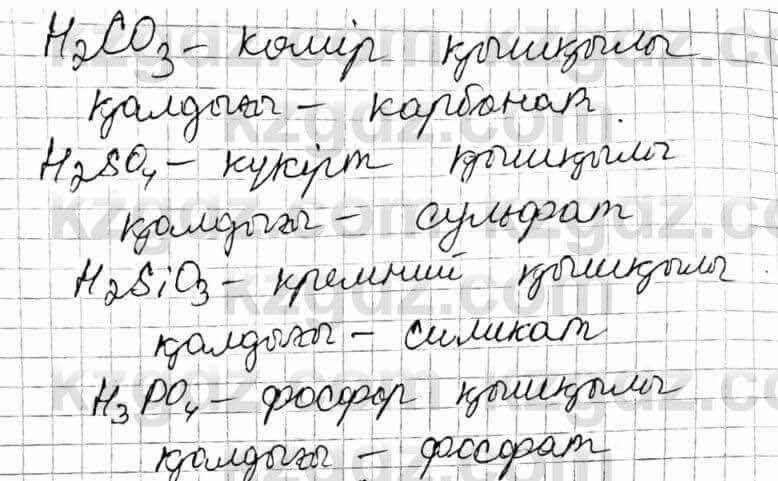 H₂CO₃ – көмір қышқылы
қалдығы – карбонат.
H₂SO₄ – күкірт қышқылы
қалдығы – сульфат
H₂SiO₃ – кремний қышқылы
қалдығы – силикат
H₃PO₄ – фосфор қышқылы
қалдығы – фосфат